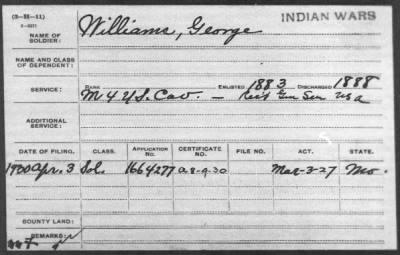 (3-M-11)
INDIAN WARS
NAME OF SOLDIER: Williams, George
NAME AND CLASS OF DEPENDENT:
SERVICE: RANK ENLISTED 1883 DISCHARGED 1888
M 4 U.S. Cav. — Gen Ser USA
ADDITIONAL SERVICE:
DATE OF FILING. CLASS. APPLICATION NO. CERTIFICATE NO. FILE NO. ACT. STATE.
1930 Apr. 3 Sol. 1664277 Mar-3-27 Mo.
COUNTY LAND:
REMARKS: